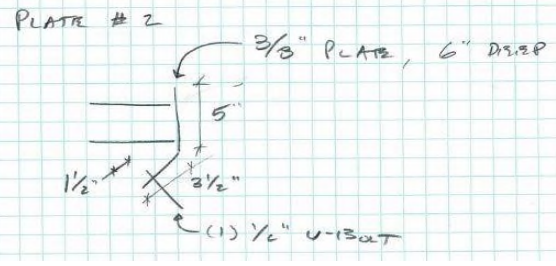 PLATE # 2
3/8" PLATE, 6" DEEP
5"
1½"
3½"
(1) ½" U-BOLT